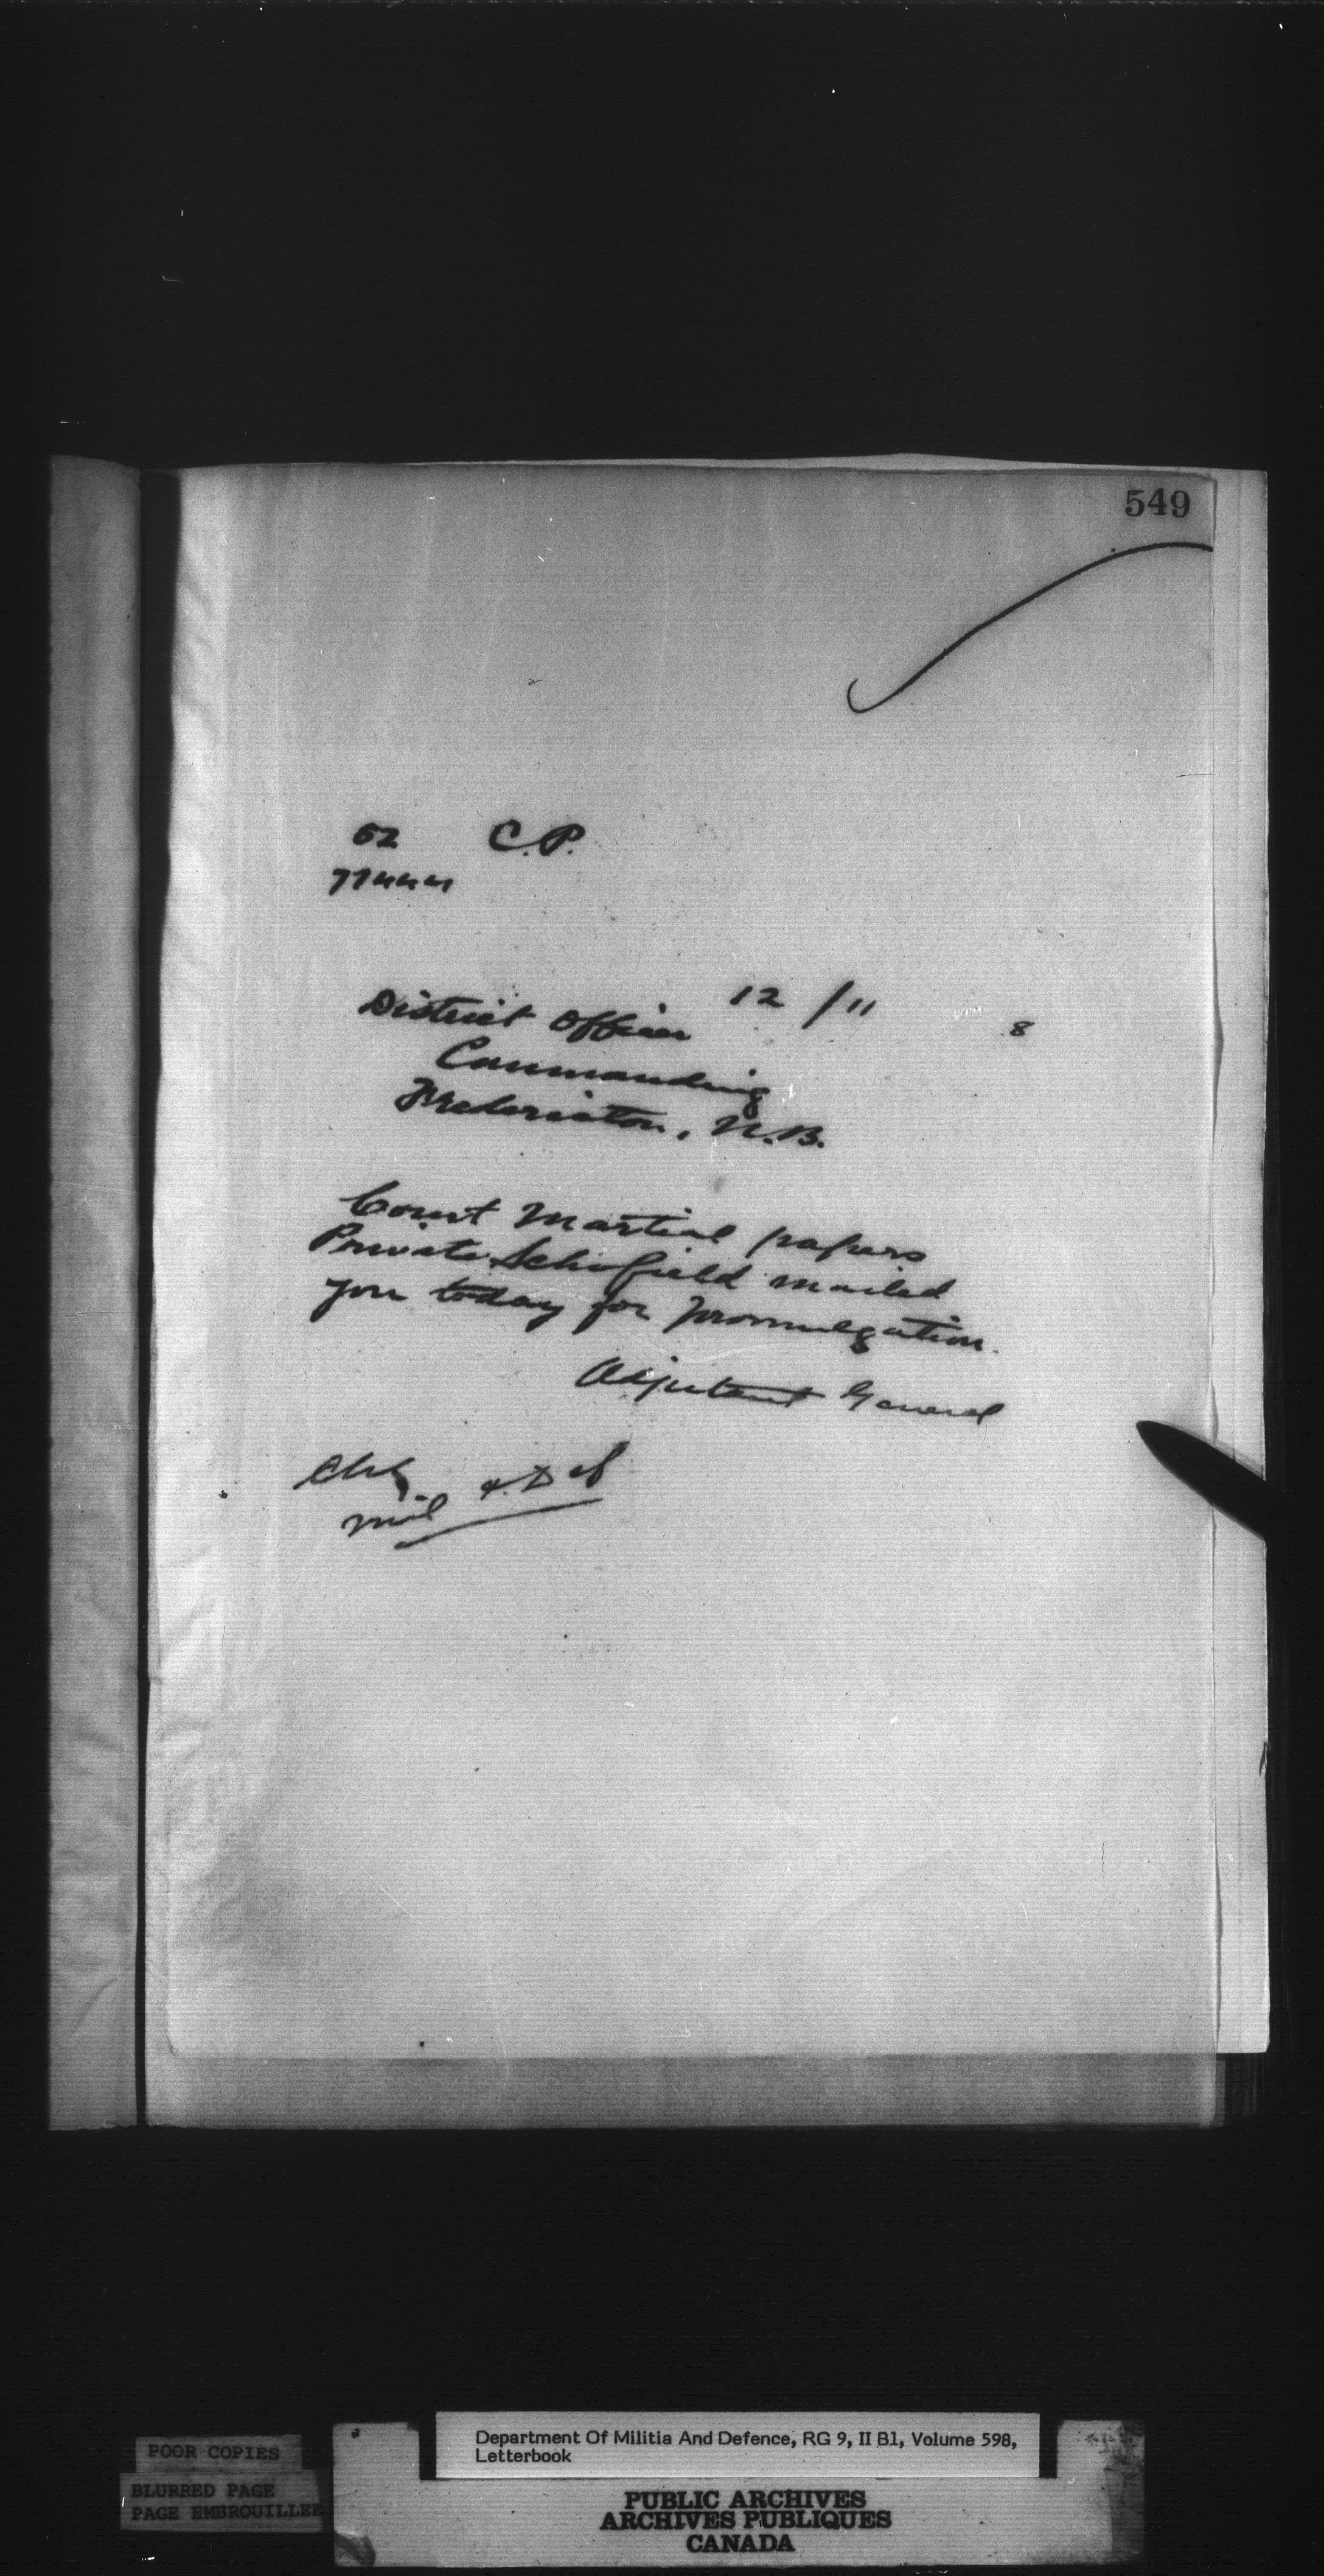 549
52 C.P.
77444
12 /11 8
District Officer
Commanding
Fredericton, N.B.
Court Martial papers
Private Schofield mailed
you today for promulgation.
Adjutant General
Chg.
Mil & Def
POOR COPIES
BLURRED PAGE
PAGE EMBROUILLEE
Department Of Militia And Defence, RG 9, II B1, Volume 598,
Letterbook
PUBLIC ARCHIVES
ARCHIVES PUBLIQUES
CANADA